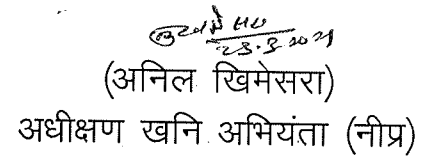 23.3.2021
(अनिल खिमेसरा)
अधीक्षण खनि अभियंता (नीप्र)